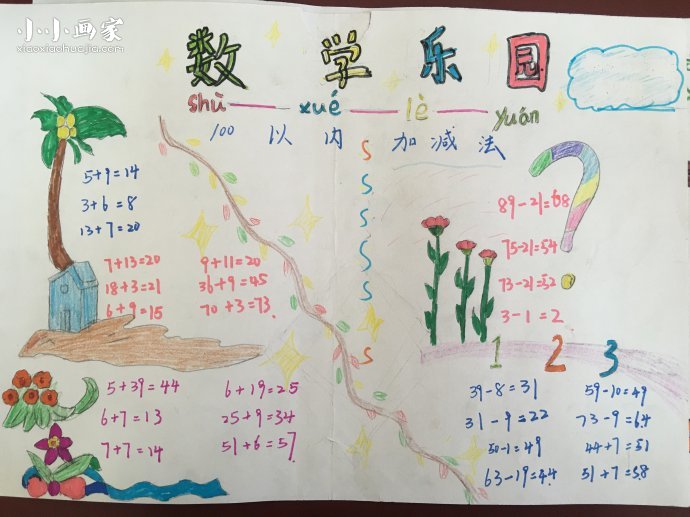 小小画家
xiaoxiaohuajia.com
数学乐园
shù xué lè yuán
100以内加减法
5+9=14
3+6=8
13+7=20
7+13=20 9+11=20
18+3=21 36+9=45
6+9=15 70+3=73
5+39=44 6+19=25
6+7=13 25+9=34
7+7=14 51+6=57
S
S
S
S
S
S
89-21=68
75-21=54
73-21=52
3-1=2
1 2 3
39-8=31 59-10=49
31-9=22 73-9=64
50-1=49 44+7=51
63-19=44 51+7=58